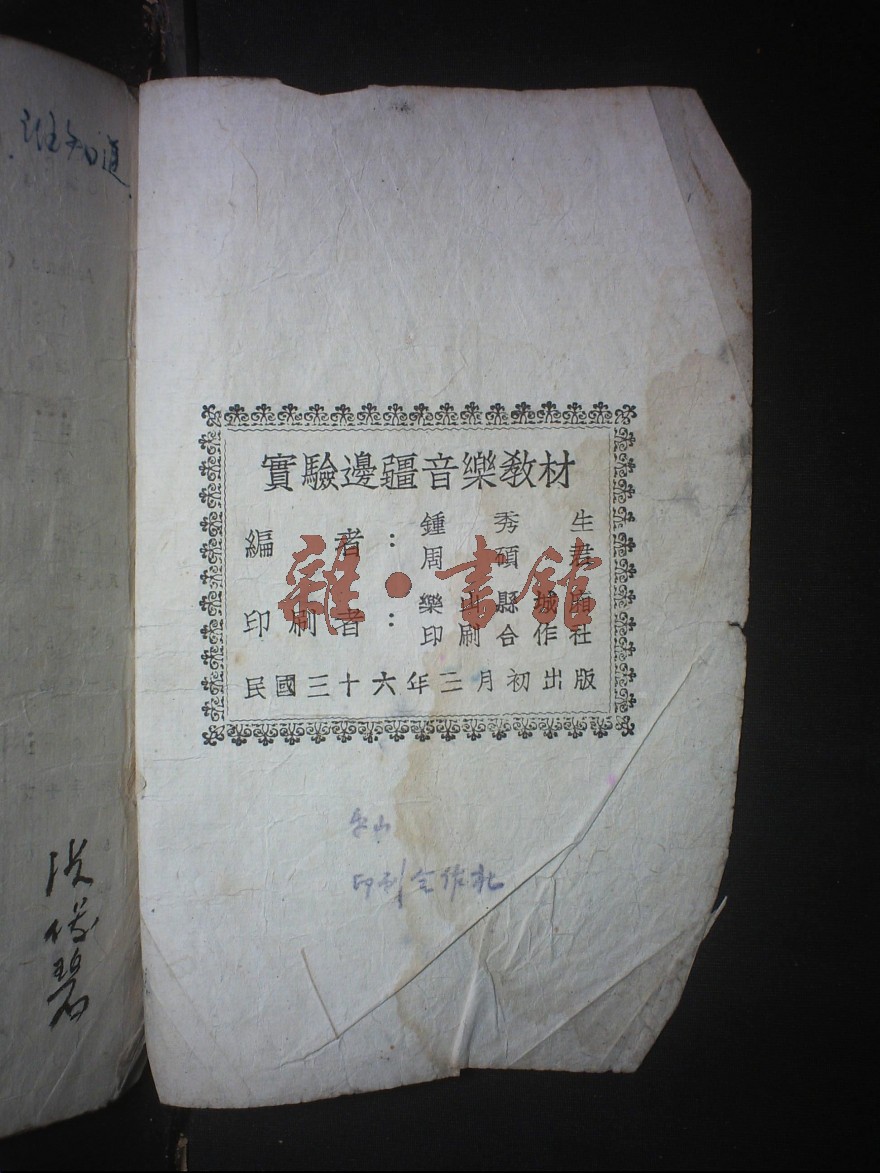 誰知道
實驗邊疆音樂教材
編者：鍾秀生
周碩君
印刷者：樂山縣城廂
印刷合作社
民國三十六年三月初出版
雜·書館
乐山
印刷合作社